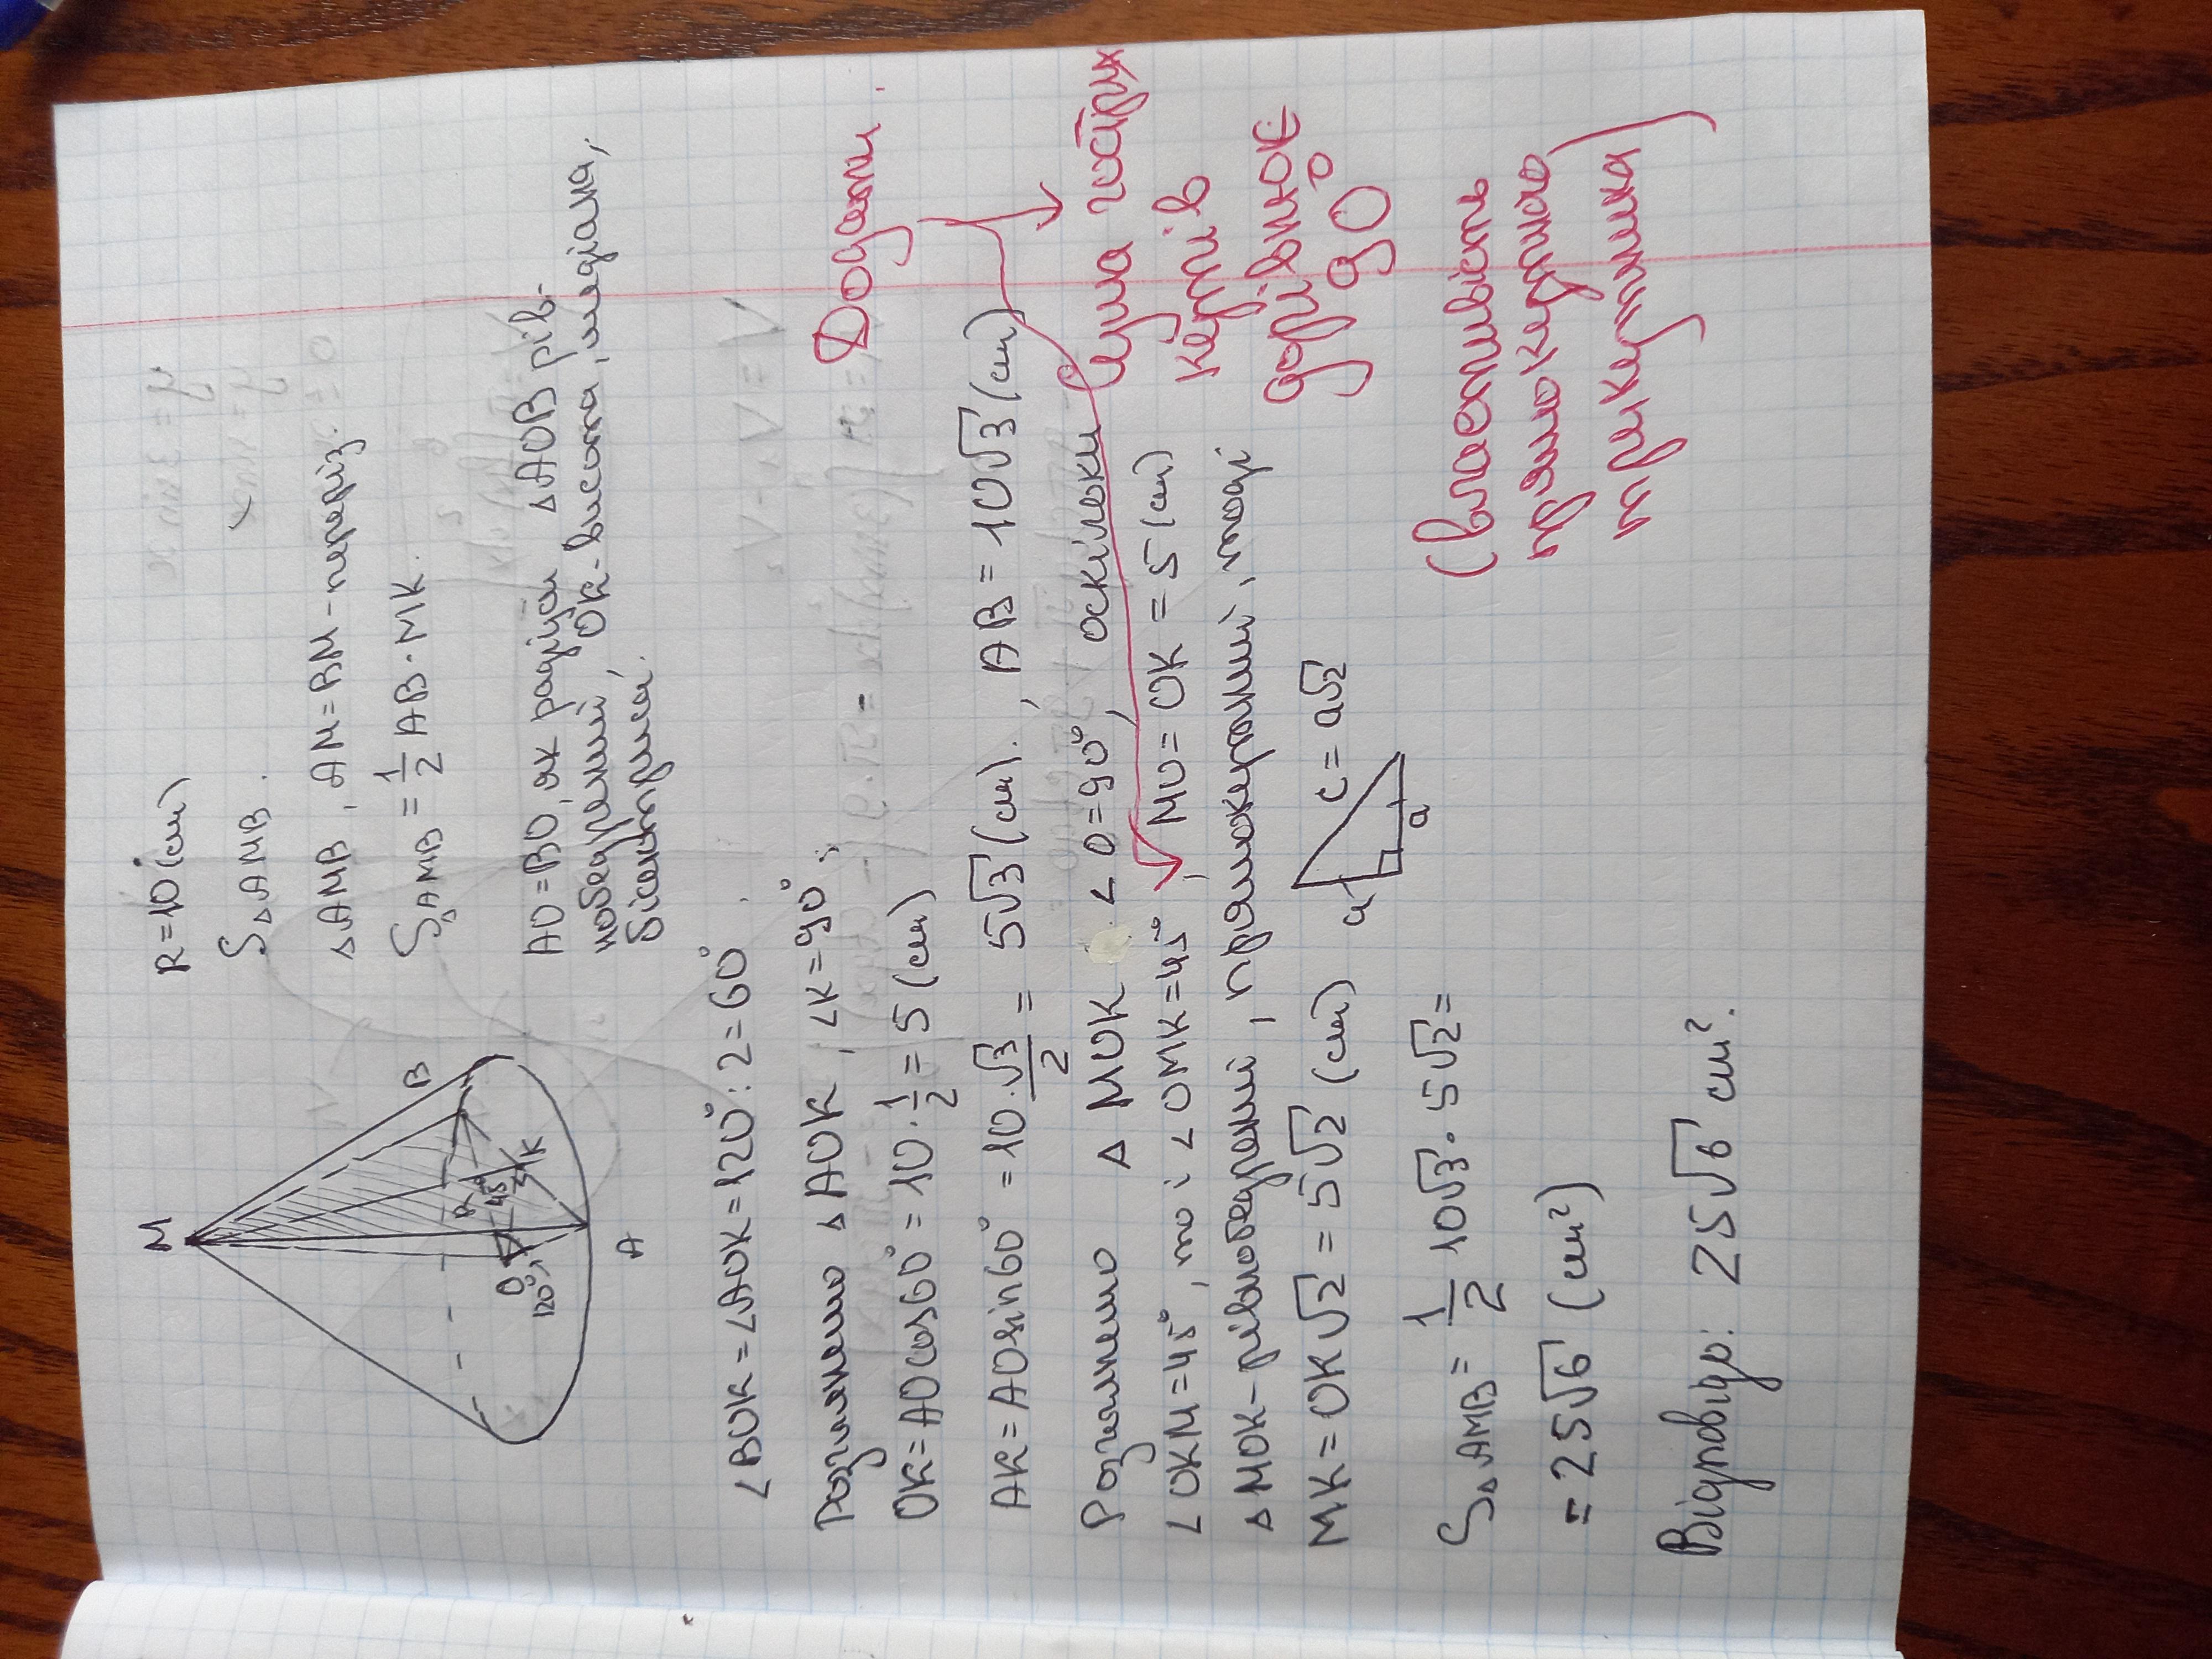 R=10 (см)
S△AMB.
△AMB, AM=BM - переріз.
S△AMB = 1/2 AB·MK.
AO=BO, як радіуси △AOB рів-
нобедрений, OK-висота, медіана,
бісектриса.
M
B
O
120°
β
45°
K
A
∠BOK=∠AOK=120°:2=60°.
Розглянемо △AOK, ∠K=90°;
OK=AOcos60°=10·1/2=5(см)
AK=AOsin60°=10·√3/2=5√3(см)., AB=10√3(см)
Розглянемо △MOK ∠O=90°, оскільки
∠OKM=45°, то і ∠OMK=45°, MO=OK=5(см)
△MOK-рівнобедрений, прямокутний, тоді
MK=OK√2=5√2(см)
a
a
c=a√2
S△AMB=1/2 10√3·5√2=
=25√6(см²)
Відповідь: 25√6 см².
Додати.
сума гострих
кутів
дорівнює
90°
(властивість
прямокутного
трикутника)